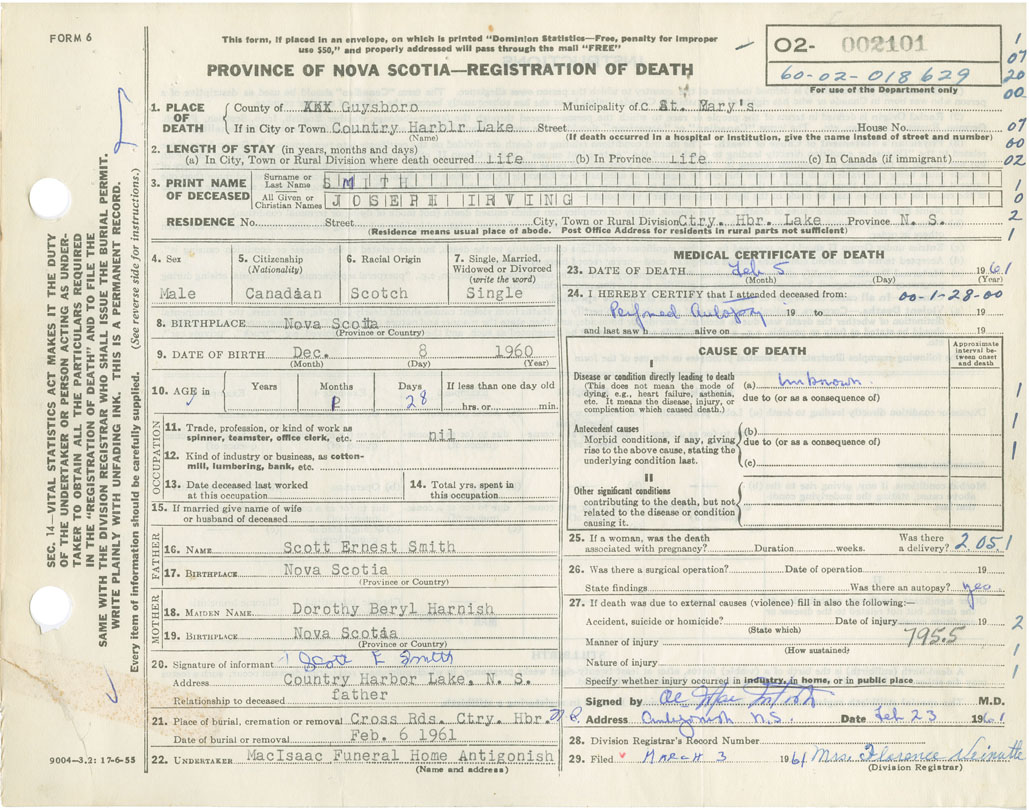 FORM 6
This form, if placed in an envelope, on which is printed "Dominion Statistics—Free, penalty for improper
use $50," and properly addressed will pass through the mail "FREE"
PROVINCE OF NOVA SCOTIA—REGISTRATION OF DEATH
02- 002101
60-02-018629
For use of the Department only
1
07
20
00
07
00
02
1
0
2
1
SEC. 14—VITAL STATISTICS ACT MAKES IT THE DUTY
OF THE UNDERTAKER OR PERSON ACTING AS UNDER-
TAKER TO OBTAIN ALL THE PARTICULARS REQUIRED
IN THE "REGISTRATION OF DEATH" AND TO FILE THE
SAME WITH THE DIVISION REGISTRAR WHO SHALL ISSUE THE BURIAL PERMIT.
WRITE PLAINLY WITH UNFADING INK. THIS IS A PERMANENT RECORD.
Every item of information should be carefully supplied. (See reverse side for instructions.)
1. PLACE OF DEATH
County of XXX Guysboro Municipality of c St. Mary's
If in City or Town Country Harblr Lake Street House No.
(Name) (If death occurred in a hospital or institution, give the name instead of street and number)
2. LENGTH OF STAY (in years, months and days)
(a) In City, Town or Rural Division where death occurred life (b) In Province life (c) In Canada (if immigrant)
3. PRINT NAME OF DECEASED
Surname or Last Name SMITH
All Given or Christian Names JOSEPH IRVING
RESIDENCE No. Street City, Town or Rural Division Ctry. Hbr. Lake Province N. S.
(Residence means usual place of abode. Post Office Address for residents in rural parts not sufficient)
4. Sex
Male
5. Citizenship
(Nationality)
Canadian
6. Racial Origin
Scotch
7. Single, Married,
Widowed or Divorced
(write the word)
Single
8. BIRTHPLACE Nova Scotia
(Province or Country)
9. DATE OF BIRTH Dec. 8 1960
(Month) (Day) (Year)
10. AGE in
Years
Months
Days
28
If less than one day old
hrs. or min.
OCCUPATION
11. Trade, profession, or kind of work as
spinner, teamster, office clerk, etc. nil
12. Kind of industry or business, as cotton-
mill, lumbering, bank, etc.
13. Date deceased last worked
at this occupation
14. Total yrs. spent in
this occupation
15. If married give name of wife
or husband of deceased
FATHER
16. NAME Scott Ernest Smith
17. BIRTHPLACE Nova Scotia
(Province or Country)
MOTHER
18. MAIDEN NAME Dorothy Beryl Harnish
19. BIRTHPLACE Nova Scotia
(Province or Country)
20. Signature of informant Scott E Smith
Address Country Harbor Lake, N. S.
Relationship to deceased father
21. Place of burial, cremation or removal Cross Rds. Ctry. Hbr.
Date of burial or removal Feb. 6 1961
22. UNDERTAKER MacIsaac Funeral Home Antigonish
(Name and address)
9004—3.2: 17-6-55
MEDICAL CERTIFICATE OF DEATH
23. DATE OF DEATH Feb 5 1961
(Month) (Day) (Year)
24. I HEREBY CERTIFY that I attended deceased from: 00-1-28-00
Perfomed Autopsy 19 to 19
and last saw h alive on 19
CAUSE OF DEATH
Approximate
interval be-
tween onset
and death
I
Disease or condition directly leading to death
(This does not mean the mode of
dying, e.g., heart failure, asthenia,
etc. It means the disease, injury, or
complication which caused death.)
(a) Unknown.
due to (or as a consequence of)
Antecedent causes
Morbid conditions, if any, giving
rise to the above cause, stating the
underlying condition last.
(b)
due to (or as a consequence of)
(c)
II
Other significant conditions
contributing to the death, but not
related to the disease or condition
causing it.
1
1
1
25. If a woman, was the death
associated with pregnancy? Duration weeks.
Was there
a delivery? 2 051
26. Was there a surgical operation? Date of operation 19
State findings Was there an autopsy? yes
27. If death was due to external causes (violence) fill in also the following:—
Accident, suicide or homicide? Date of injury 19 2
(State which)
Manner of injury 795.5 1
(How sustained)
Nature of injury 1
Specify whether injury occurred in industry, in home, or in public place
Signed by M.D.
Address Antigonish N.S. Date Feb 23 1961
28. Division Registrar's Record Number
29. Filed MARCH 3 1961 Mrs. Florence
(Division Registrar)